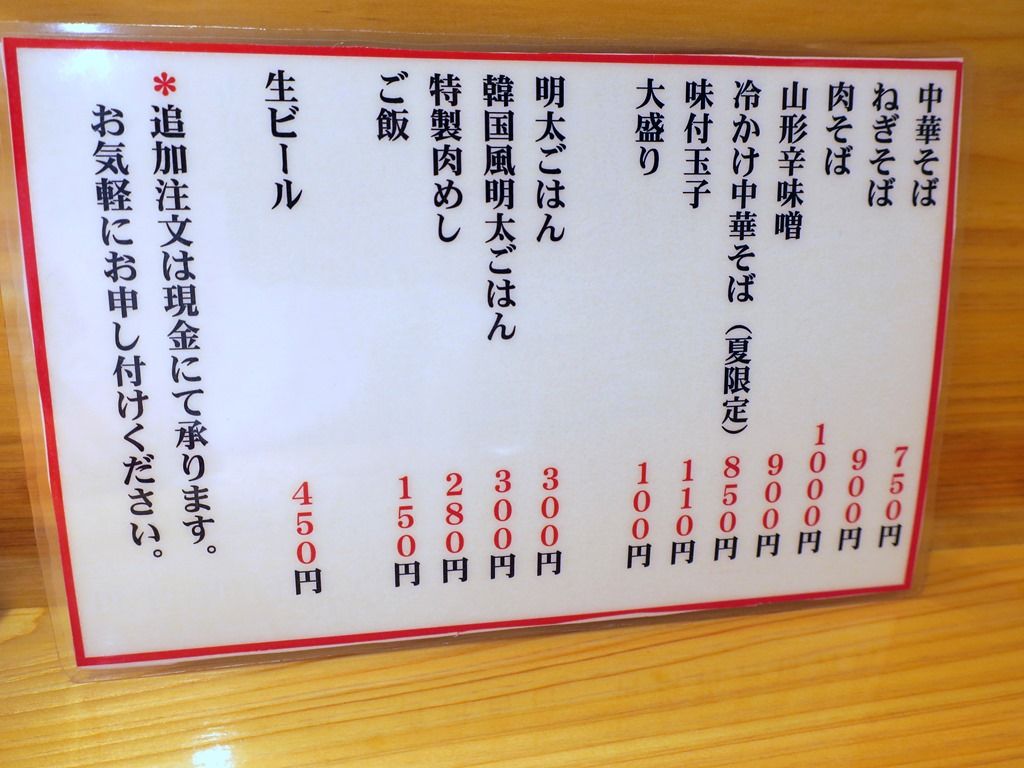 中華そば 750円
ねぎそば 900円
肉そば 1000円
山形辛味噌 900円
冷かけ中華そば（夏限定） 850円
味付玉子 110円
大盛り 100円
明太ごはん 300円
韓国風明太ごはん 300円
特製肉めし 280円
ご飯 150円
生ビール 450円
*追加注文は現金にて承ります。
お気軽にお申し付けください。